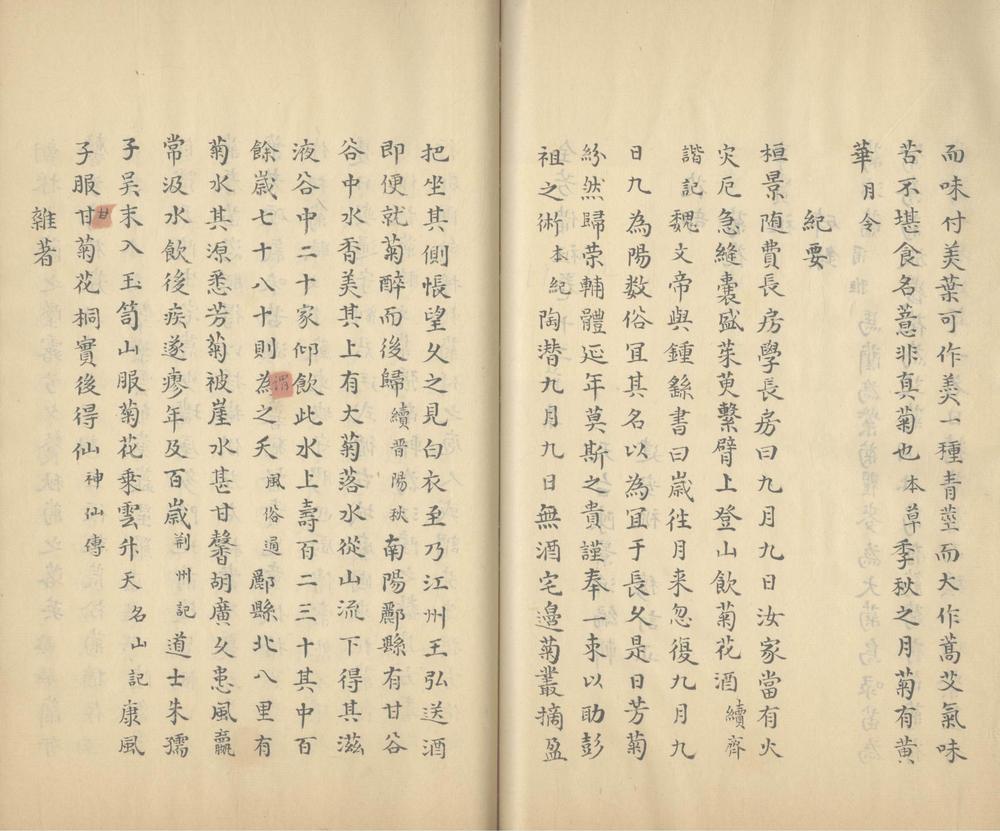 而味付美葉可作羮一種青莖而大作蒿艾氣味
苦不堪食名薏非真菊也本草季秋之月菊有黄
華月令
紀要
桓景随費長房學長房曰九月九日汝家當有火
灾厄急縫囊盛茱萸繫臂上登山飲菊花酒續齊
諧記魏文帝與鍾繇書曰歳徃月来忽復九月九
日九為陽数俗冝其名以為冝于長久是日芳菊
紛然歸荣輔體延年莫斯之貴謹奉一束以助彭
祖之術本紀陶潜九月九日無酒宅邉菊叢摘盈
把坐其側悵望久之見白衣至乃江州王弘送酒
即便就菊醉而後歸續晋陽秋南陽酈縣有甘谷
谷中水香美其上有大菊落水從山流下得其滋
液谷中二十家仰飲此水上壽百二三十其中百
餘歳七十八十則為之夭風俗通酈縣北八里有
謂
菊水其源悉芳菊被崖水甚甘馨胡廣久患風羸
常汲水飲後疾遂瘳年及百歳荆州記道士朱孺
子吴末入玉笥山服菊花乘雲升天名山記康風
子服甘菊花桐實後得仙神仙傳
甘
雜著